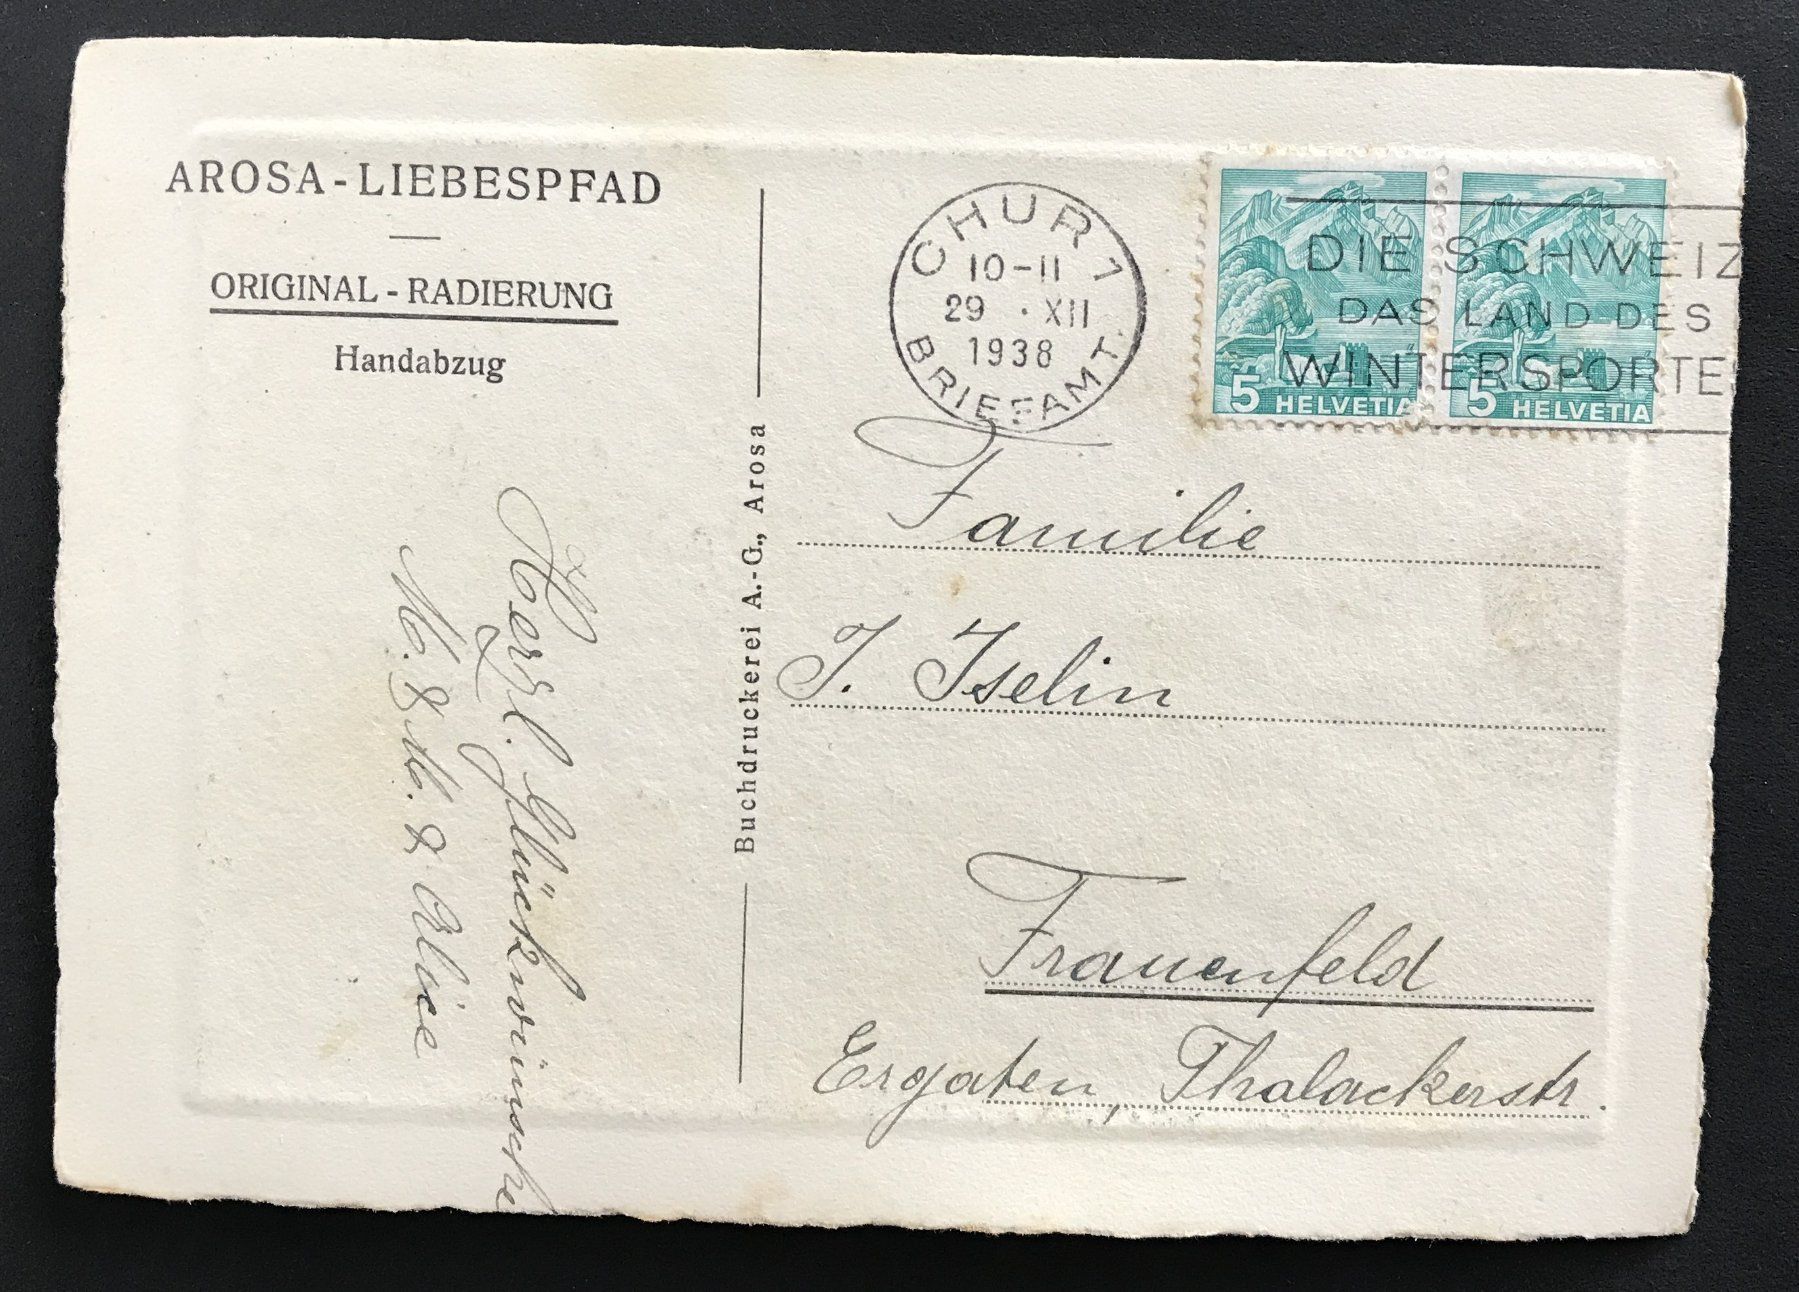 AROSA-LIEBESPFAD
ORIGINAL-RADIERUNG
Handabzug
Herzl. Glückwünsche
M. & M. & Alice
Buchdruckerei A.-G., Arosa
CHUR 1
10-11
29 . XII
1938
BRIEFAMT.
DIE SCHWEIZ
DAS LAND DES
WINTERSPORTE
5 HELVETIA
5 HELVETIA
Familie
J. Iselin
Frauenfeld
Ergaten, Thalackerstr.